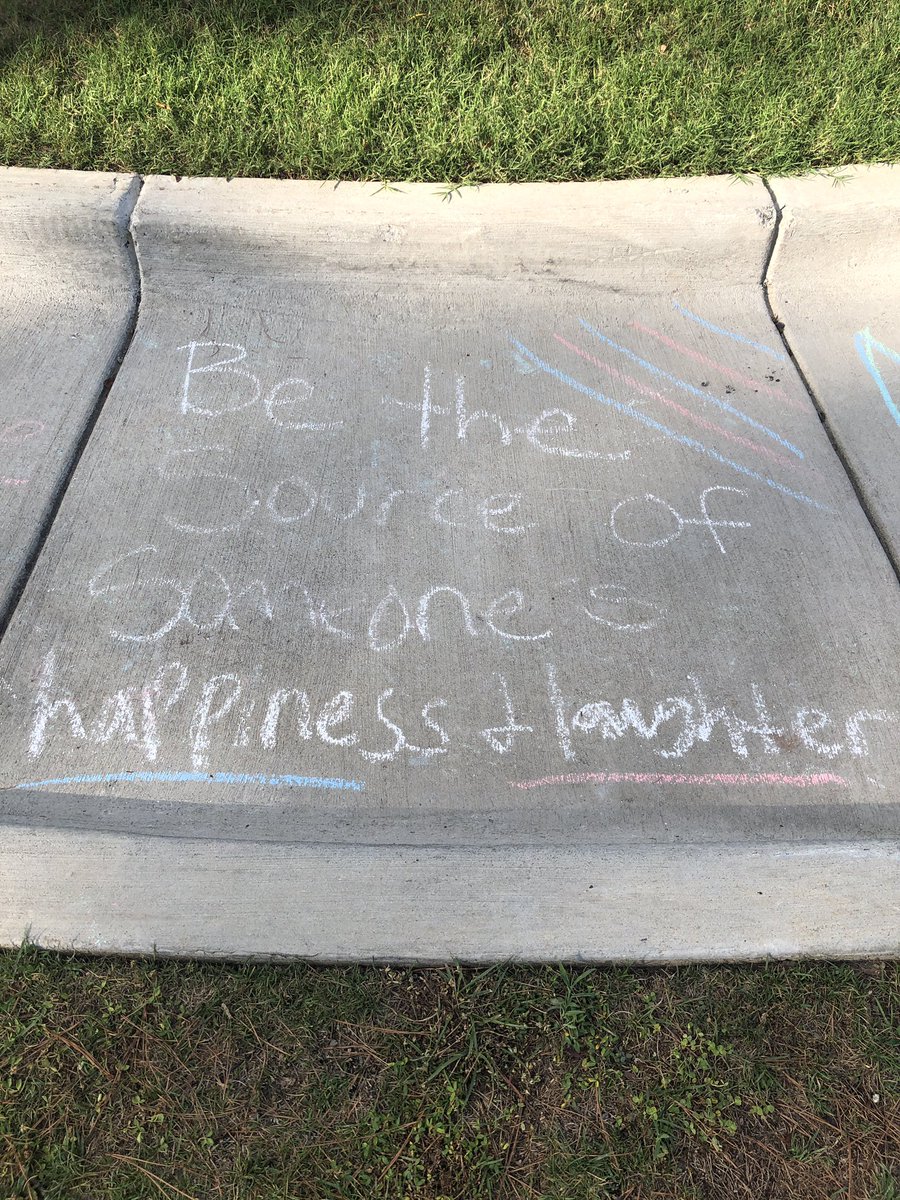 Be the
Source of
Someone's
happiness + laughter